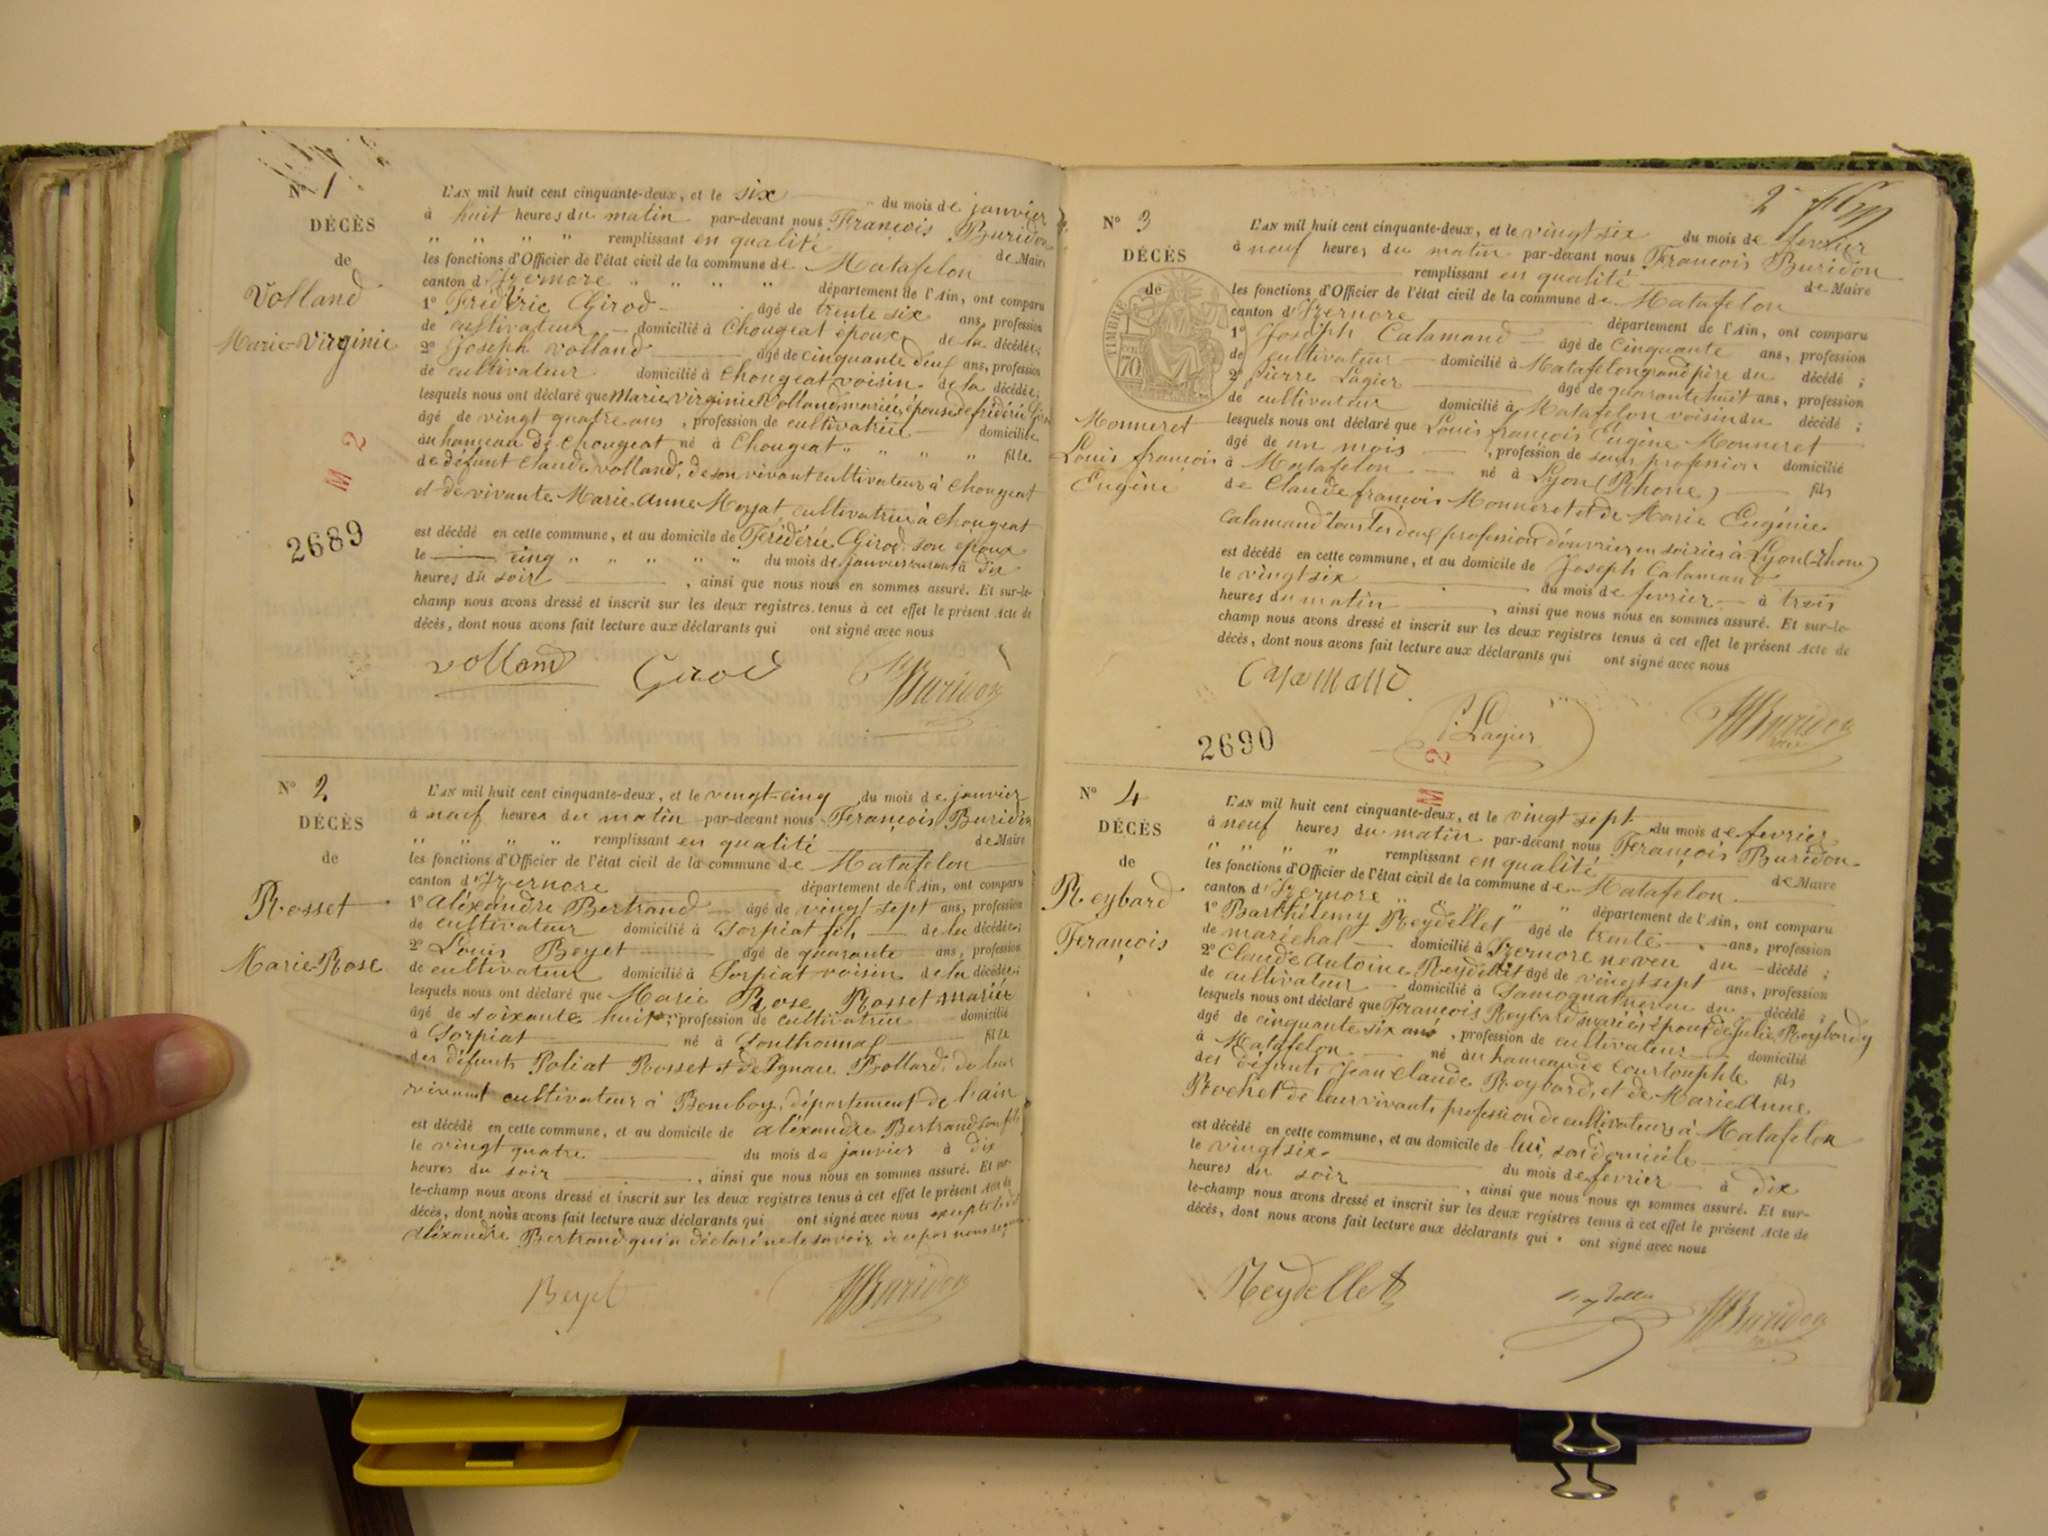 N° 1
DÉCÈS
de
Volland
Marie-Virginie
M 2
2689
L'AN mil huit cent cinquante-deux, et le six du mois de janvier
à huit heures du matin par-devant nous François Buridon
" " " " remplissant en qualité de Maire
les fonctions d'Officier de l'état civil de la commune de Matafelon
canton d'Izernore " " " " département de l'Ain, ont comparu
1° Frédéric Girod âgé de trente six ans, profession
de cultivateur domicilié à Chougeat époux de la décédée;
2° Joseph Volland âgé de cinquante deux ans, profession
de cultivateur domicilié à Chougeat voisin de la décédée;
lesquels nous ont déclaré que Marie Virginie Volland, mariée, épouse de frédéric Girod
âgé de vingt quatre ans, profession de cultivatrice domiciliée
au hameau de Chougeat né à Chougeat " " " " fille
de défunt Claude Volland, de son vivant cultivateur à Chougeat
et de vivante Marie Anne Moyat cultivatrice à Chougeat
est décédé en cette commune, et au domicile de Frédéric Girod son époux
le cinq " " " " " du mois de janvier courant à dix
heures du soir, ainsi que nous nous en sommes assuré. Et sur-le-
champ nous avons dressé et inscrit sur les deux registres tenus à cet effet le présent Acte de
décès, dont nous avons fait lecture aux déclarants qui ont signé avec nous
volland Girod Buridon
N° 2
DÉCÈS
de
Rosset
Marie-Rose
L'AN mil huit cent cinquante-deux, et le vingt-cinq du mois de janvier
à neuf heures du matin par-devant nous François Buridon
" " " " remplissant en qualité de Maire
les fonctions d'Officier de l'état civil de la commune de Matafelon
canton d'Izernore département de l'Ain, ont comparu
1° aléxandre Bertrand âgé de vingt sept ans, profession
de cultivateur domicilié à Sorpiat fils de la décédée;
2° Louis Beyet âgé de quarante ans, profession
de cultivateur domicilié à Sorpiat voisin de la décédée;
lesquels nous ont déclaré que Marie Rose Rosset mariée
âgé de soixante huit, profession de cultivatrice domicilié
à Sorpiat né à Sonthonnas fille
des défunts Poliat Rosset et de Ignace Bollard, de leur
vivant cultivateur à Bomboy, département de l'ain
est décédé en cette commune, et au domicile de aléxandre Bertrand son fils
le vingt quatre du mois de janvier à dix
heures du soir, ainsi que nous nous en sommes assuré. Et sur-
le-champ nous avons dressé et inscrit sur les deux registres tenus à cet effet le présent Acte de
décès, dont nous avons fait lecture aux déclarants qui ont signé avec nous excepté le dit
aléxandre Bertrand qui a déclaré ne le savoir de ce par nous requis
Beyet Buridon
2
N° 3
DÉCÈS
de
TIMBRE
70
Monneret
Louis françois
Eugène
L'AN mil huit cent cinquante-deux, et le vingt six du mois de fevrier
à neuf heures du matin par-devant nous François Buridon
remplissant en qualité de Maire
les fonctions d'Officier de l'état civil de la commune de Matafelon
canton d'Izernore département de l'Ain, ont comparu
1° Joseph Calamand âgé de cinquante ans, profession
de cultivateur domicilié à Matafelon grand père du décédé;
2° Pierre Lagier âgé de quarante huit ans, profession
de cultivateur domicilié à Matafelon voisin du décédé;
lesquels nous ont déclaré que Louis françois Eugène Monneret
âgé de un mois, profession de sans profession domicilié
à Matafelon né à Lyon (Rhone) fils
de Claude françois Monneret et de Marie Eugénie
Calamand tous les deux profession d'ouvriers en soiries à Lyon (rhone)
est décédé en cette commune, et au domicile de Joseph Calamand
le vingt six du mois de fevrier à trois
heures du matin, ainsi que nous nous en sommes assuré. Et sur-le-
champ nous avons dressé et inscrit sur les deux registres tenus à cet effet le présent Acte de
décès, dont nous avons fait lecture aux déclarants qui ont signé avec nous
Calamand
P. Lagier Buridon
2690
M 2
N° 4
DÉCÈS
de
Reybard
François
L'AN mil huit cent cinquante-deux, et le vingt sept du mois de fevrier
à neuf heures du matin par-devant nous François Buridon
" " " " remplissant en qualité de Maire
les fonctions d'Officier de l'état civil de la commune de Matafelon
canton d'Izernore " " " " département de l'Ain, ont comparu
1° Barthélemy Reydellet âgé de trente ans, profession
de maréchal domicilié à Izernore neveu du décédé;
2° Claude Antoine Reydellet âgé de vingt sept ans, profession
de cultivateur domicilié à Samognat neveu du décédé;
lesquels nous ont déclaré que François Reybard marié époux de Julie Reybard
âgé de cinquante six ans, profession de cultivateur domicilié
à Matafelon né au hameau de Courtouphle fils
des défunts Jean Claude Reybard, et de Marie Anne
Rochet de leur vivants profession de cultivateurs à Matafelon
est décédé en cette commune, et au domicile de lui, son domicile
le vingt six du mois de fevrier à dix
heures du soir, ainsi que nous nous en sommes assuré. Et sur-
le-champ nous avons dressé et inscrit sur les deux registres tenus à cet effet le présent Acte de
décès, dont nous avons fait lecture aux déclarants qui ont signé avec nous
Reydellet Buridon